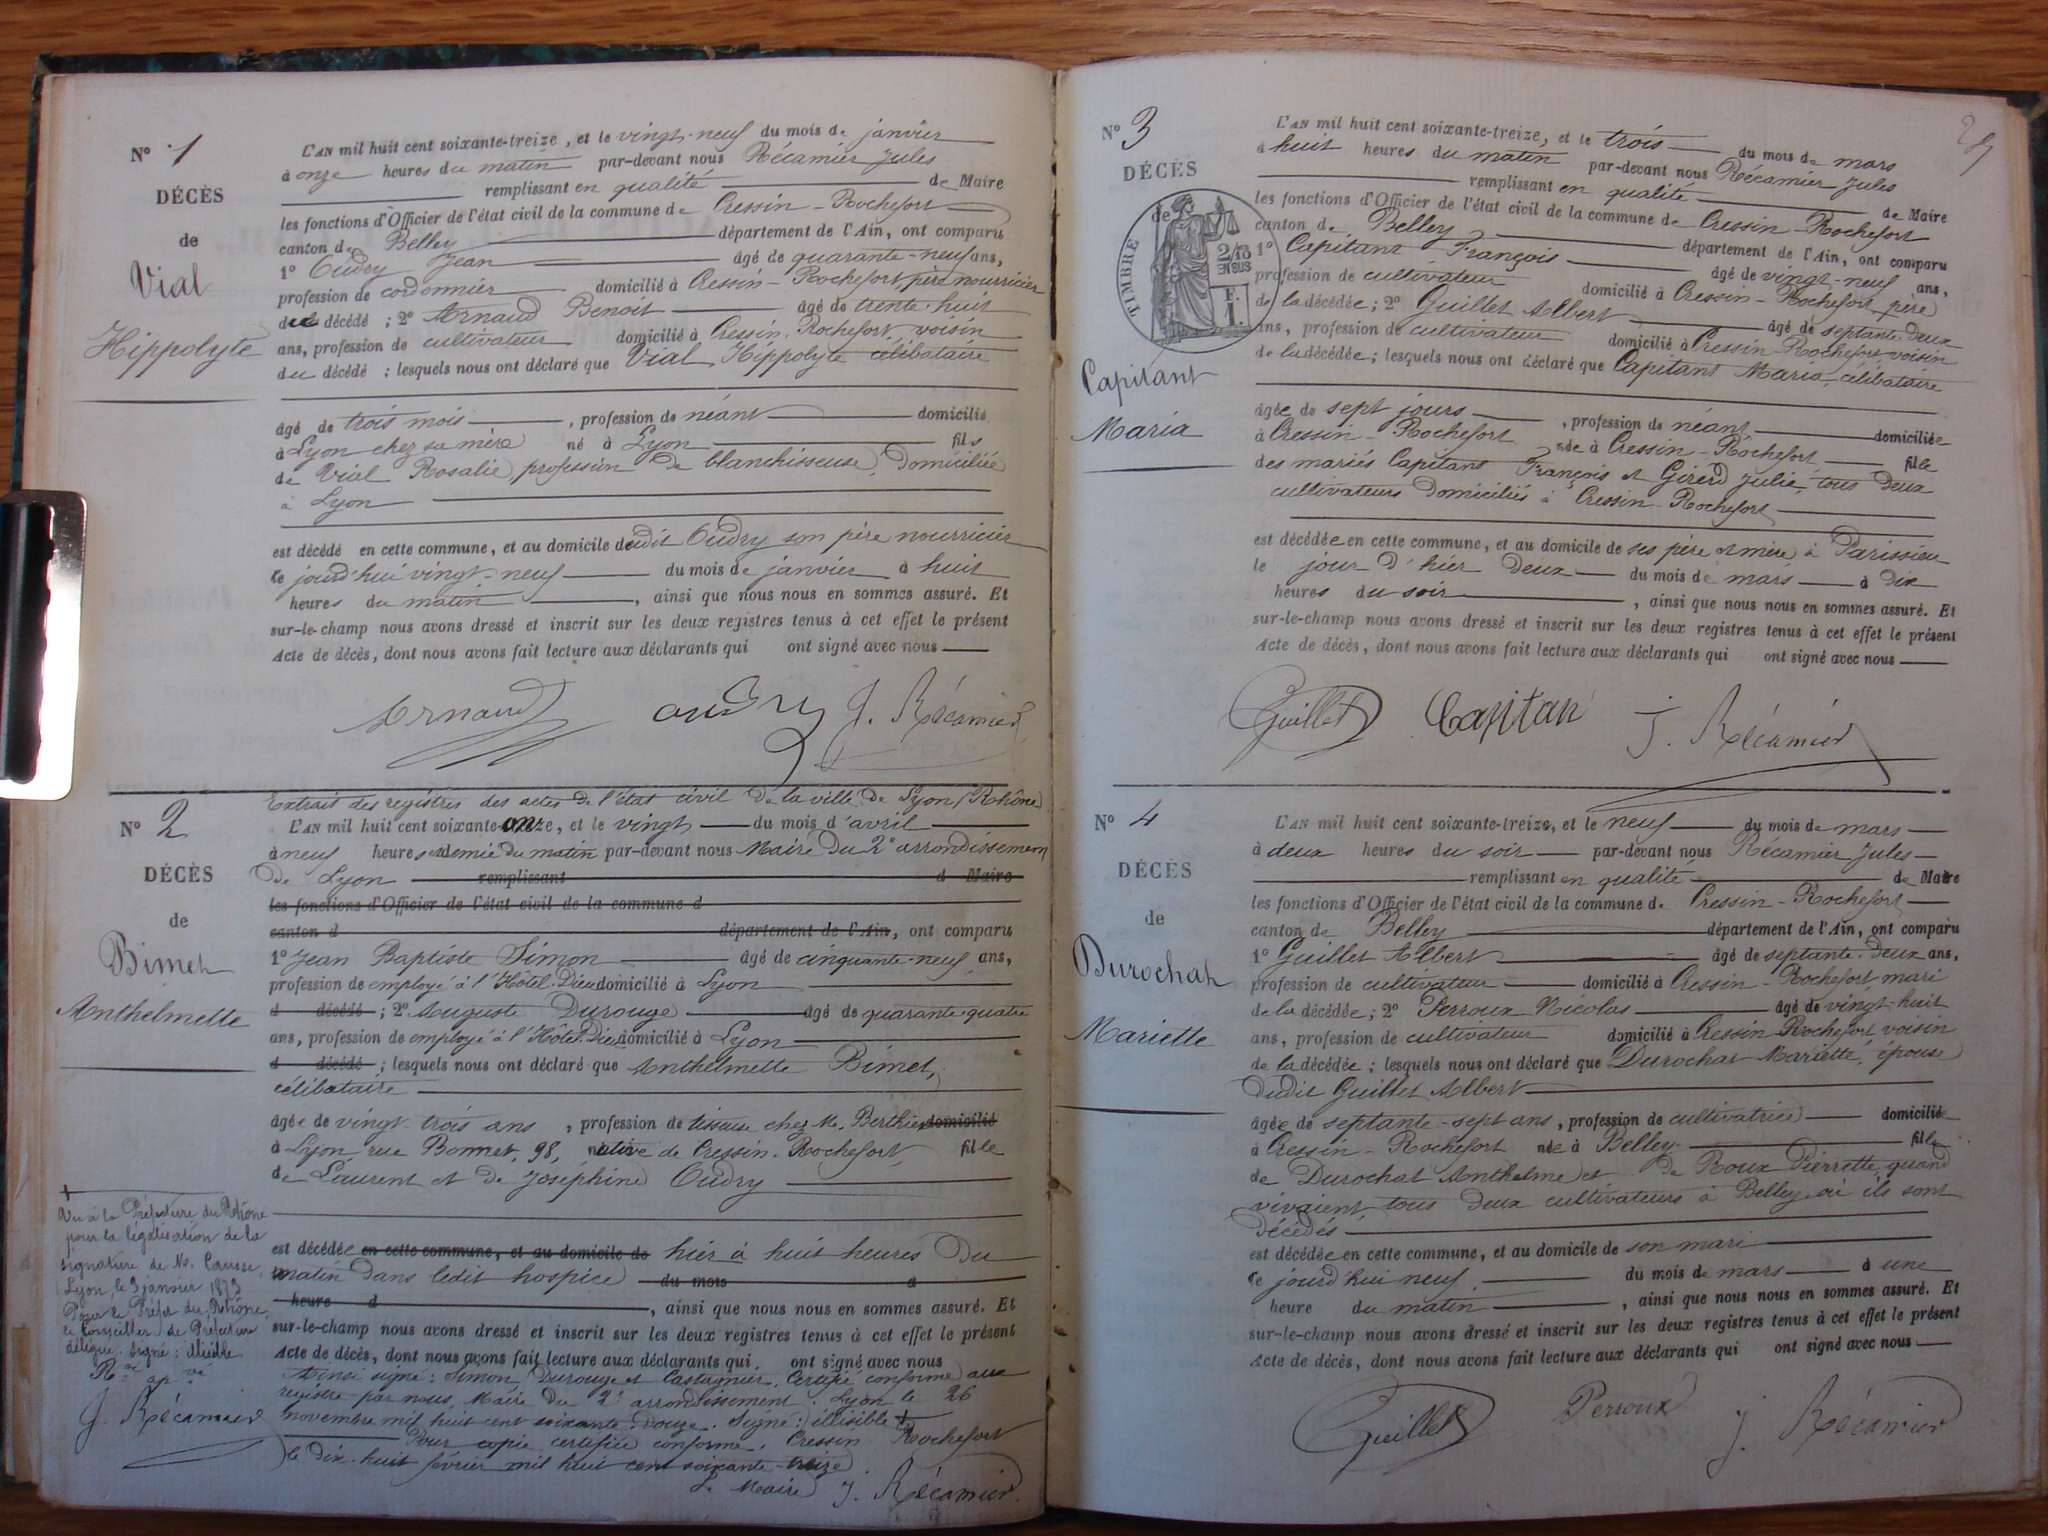 N° 1
DÉCÈS
de
Vial
Hippolyte
L'AN mil huit cent soixante-treize, et le vingt-neuf du mois de janvier
à onze heures du matin par-devant nous Récamier Jules
remplissant en qualité de Maire
les fonctions d'Officier de l'état civil de la commune de Cressin-Rochefort
canton de Belley département de l'Ain, ont comparu
1° Oudry Jean âgé de quarante-neuf ans,
profession de cordonnier domicilié à Cressin-Rochefort, père nourricier
du décédé ; 2° Arnaud Benoit âgé de trente-huit
ans, profession de cultivateur domicilié à Cressin-Rochefort, voisin
du décédé ; lesquels nous ont déclaré que Vial Hippolyte célibataire
âgé de trois mois, profession de néant domicilié
à Lyon chez sa mère né à Lyon fils
de Vial Rosalie, profession de blanchisseuse, domiciliée
à Lyon
est décédé en cette commune, et au domicile dudit Oudry son père nourricier
ce jourd'hui vingt-neuf du mois de janvier à huit
heures du matin, ainsi que nous nous en sommes assuré. Et
sur-le-champ nous avons dressé et inscrit sur les deux registres tenus à cet effet le présent
Acte de décès, dont nous avons fait lecture aux déclarants qui ont signé avec nous
Arnaud oudry J. Récamier
N° 2
DÉCÈS
de
Bimet
Anthelmette
Extrait des registres des actes de l'état civil de la ville de Lyon (Rhône)
L'AN mil huit cent soixante-onze, et le vingt du mois d'avril
à neuf heures et demie du matin par-devant nous Maire du 2e arrondissement
de Lyon remplissant d Maire
les fonctions d'Officier de l'état civil de la commune d
canton d département de l'Ain, ont comparu
1° Jean Baptiste Simon âgé de cinquante-neuf ans,
profession de employé à l'Hôtel-Dieu domicilié à Lyon
d décédé ; 2° Auguste Durouge âgé de quarante-quatre
ans, profession de employé à l'Hôtel-Dieu domicilié à Lyon
d décédé ; lesquels nous ont déclaré que Anthelmette Bimet,
célibataire
âgée de vingt-trois ans, profession de tisseuse chez M. Berthier domicilié
à Lyon rue Bonnet, 98, native de Cressin-Rochefort, fille
de Laurent et de Joséphine Oudry
est décédée en cette commune, et au domicile de hier à huit heures du
matin dans ledit hospice du mois à
heure d, ainsi que nous nous en sommes assuré. Et
sur-le-champ nous avons dressé et inscrit sur les deux registres tenus à cet effet le présent
Acte de décès, dont nous avons fait lecture aux déclarants qui ont signé avec nous
Ainsi signé : Simon, Durouge et Castagnier. Certifié conforme aux
registre par nous, Maire du 2e arrondissement. Lyon le 26
novembre mil huit cent soixante-douze. Signé : illisible +
Pour copie certifiée conforme, Cressin Rochefort
le dix-huit février mil huit cent soixante-treize
Le Maire J. Récamier
+
Vu à la Préfecture du Rhône
pour la légalisation de la
signature de M. Causse
Lyon, le 3 janvier 1873
Pour le Préfet du Rhône,
le Conseiller de Préfecture
délégué. Signé : illisible
J. Récamier
N° 3
DÉCÈS
de
Capitant
Maria
TIMBRE
2/10
EN SUS
L'AN mil huit cent soixante-treize, et le trois du mois de mars
à huit heures du matin par-devant nous Récamier Jules
remplissant en qualité de Maire
les fonctions d'Officier de l'état civil de la commune de Cressin-Rochefort
canton de Belley département de l'Ain, ont comparu
1° Capitant François âgé de vingt-neuf ans,
profession de cultivateur domicilié à Cressin-Rochefort, père
de la décédée ; 2° Guillet Albert âgé de septante-deux
ans, profession de cultivateur domicilié à Cressin-Rochefort, voisin
de la décédée ; lesquels nous ont déclaré que Capitant Maria, célibataire
âgée de sept jours, profession de néant domiciliée
à Cressin-Rochefort née à Cressin-Rochefort, fille
des mariés Capitant François et Girerd Julie, tous deux
cultivateurs domiciliés à Cressin-Rochefort
est décédée en cette commune, et au domicile de ses père et mère à Parissieu
le jour d'hier deux du mois de mars à dix
heures du soir, ainsi que nous nous en sommes assuré. Et
sur-le-champ nous avons dressé et inscrit sur les deux registres tenus à cet effet le présent
Acte de décès, dont nous avons fait lecture aux déclarants qui ont signé avec nous
Guillet Capitan J. Récamier
N° 4
DÉCÈS
de
Durochat
Mariette
L'AN mil huit cent soixante-treize, et le neuf du mois de mars
à deux heures du soir par-devant nous Récamier Jules
remplissant en qualité de Maire
les fonctions d'Officier de l'état civil de la commune de Cressin-Rochefort
canton de Belley département de l'Ain, ont comparu
1° Guillet Albert âgé de septante-deux ans,
profession de cultivateur domicilié à Cressin-Rochefort, mari
de la décédée ; 2° Perroux Nicolas âgé de vingt-huit
ans, profession de cultivateur domicilié à Cressin-Rochefort, voisin
de la décédée ; lesquels nous ont déclaré que Durochat Mariette, épouse
dudit Guillet Albert
âgée de septante-sept ans, profession de cultivatrice domicilié
à Cressin-Rochefort née à Belley fille
de Durochat Anthelme et de Roux Pierrette, quand
vivaient tous deux cultivateurs à Belley où ils sont
décédés
est décédée en cette commune, et au domicile de son mari
ce jourd'hui neuf du mois de mars à une
heure du matin, ainsi que nous nous en sommes assuré. Et
sur-le-champ nous avons dressé et inscrit sur les deux registres tenus à cet effet le présent
Acte de décès, dont nous avons fait lecture aux déclarants qui ont signé avec nous
Guillet Perroux J. Récamier